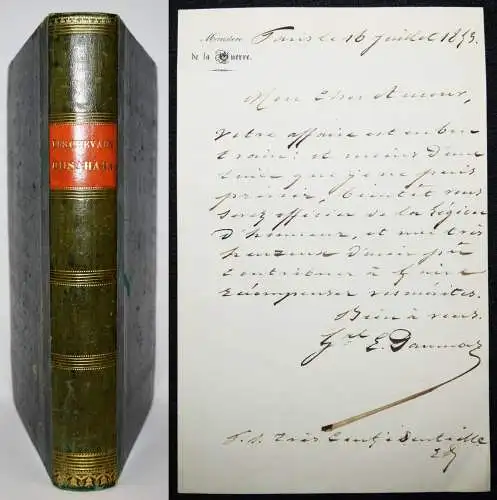 LES CHEVAUX
DU SAHARA
Ministère
de la Guerre.
Paris le 16 juillet 1853.
Mon cher Amour,
Votre affaire est en bon
train: et moins d'une
que je ne puis
prévoir, bientôt vous
serez officier de la Légion
d'honneur, et moi très
heureux d'avoir pu
contribuer à faire
récompenser vos mérites.
Bien à vous.
Gal E. Daumas
P. S. très confidentielle
E D